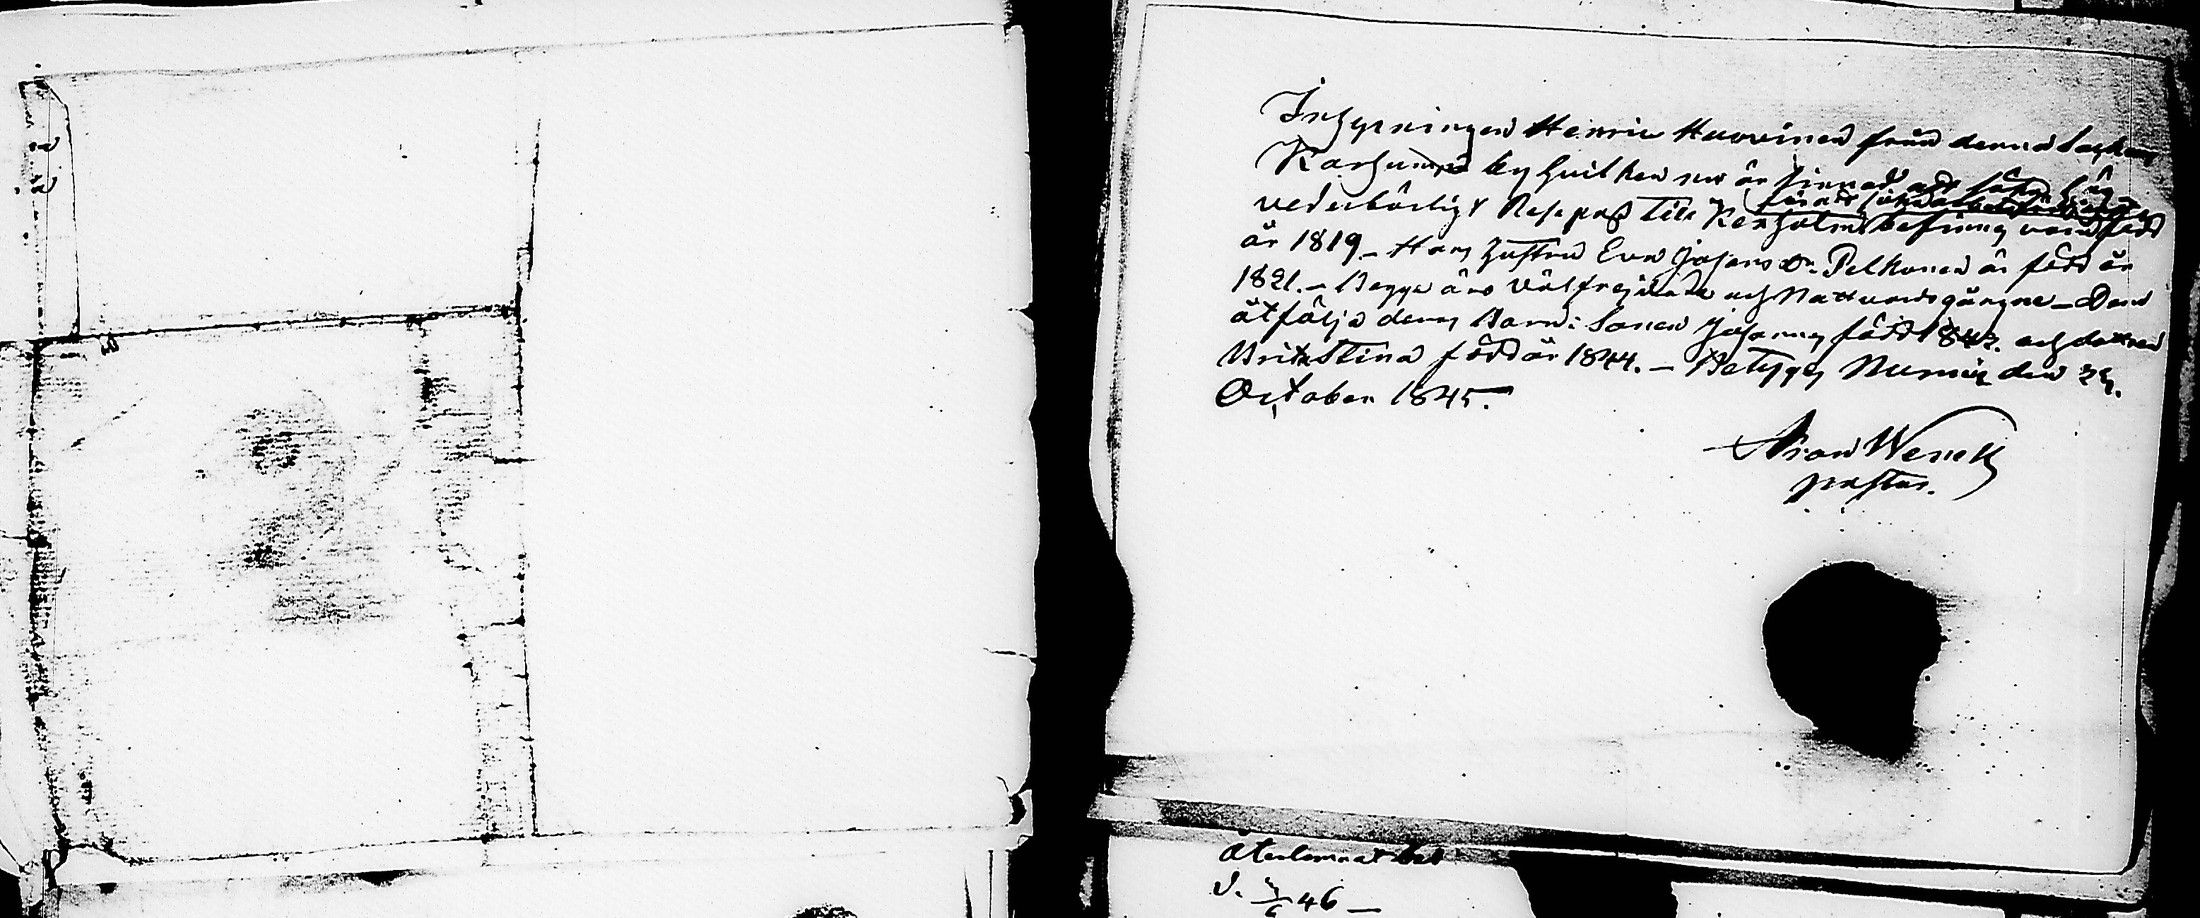 Inhysningen Henric Huovinen från denna Sochns
Karhunpä by hvilken nu är sinnad att söka sig
vederbörligt Respass till Kexholm befinnes vara född
år 1819 – Hans hustru Eva Johans Dr. Pelkonen är född år
1821. – Begge äro välfrejdade och Nattvardsgångne – Dem
åtfölja deras Barn: Sonen Johannes född 1842. och dottren
Brita Stina född år 1844. – Betygas Nurmis den 29.
October 1845.
Aron Wenell
pastor.
Återlemnat
d. 3/6 46 –